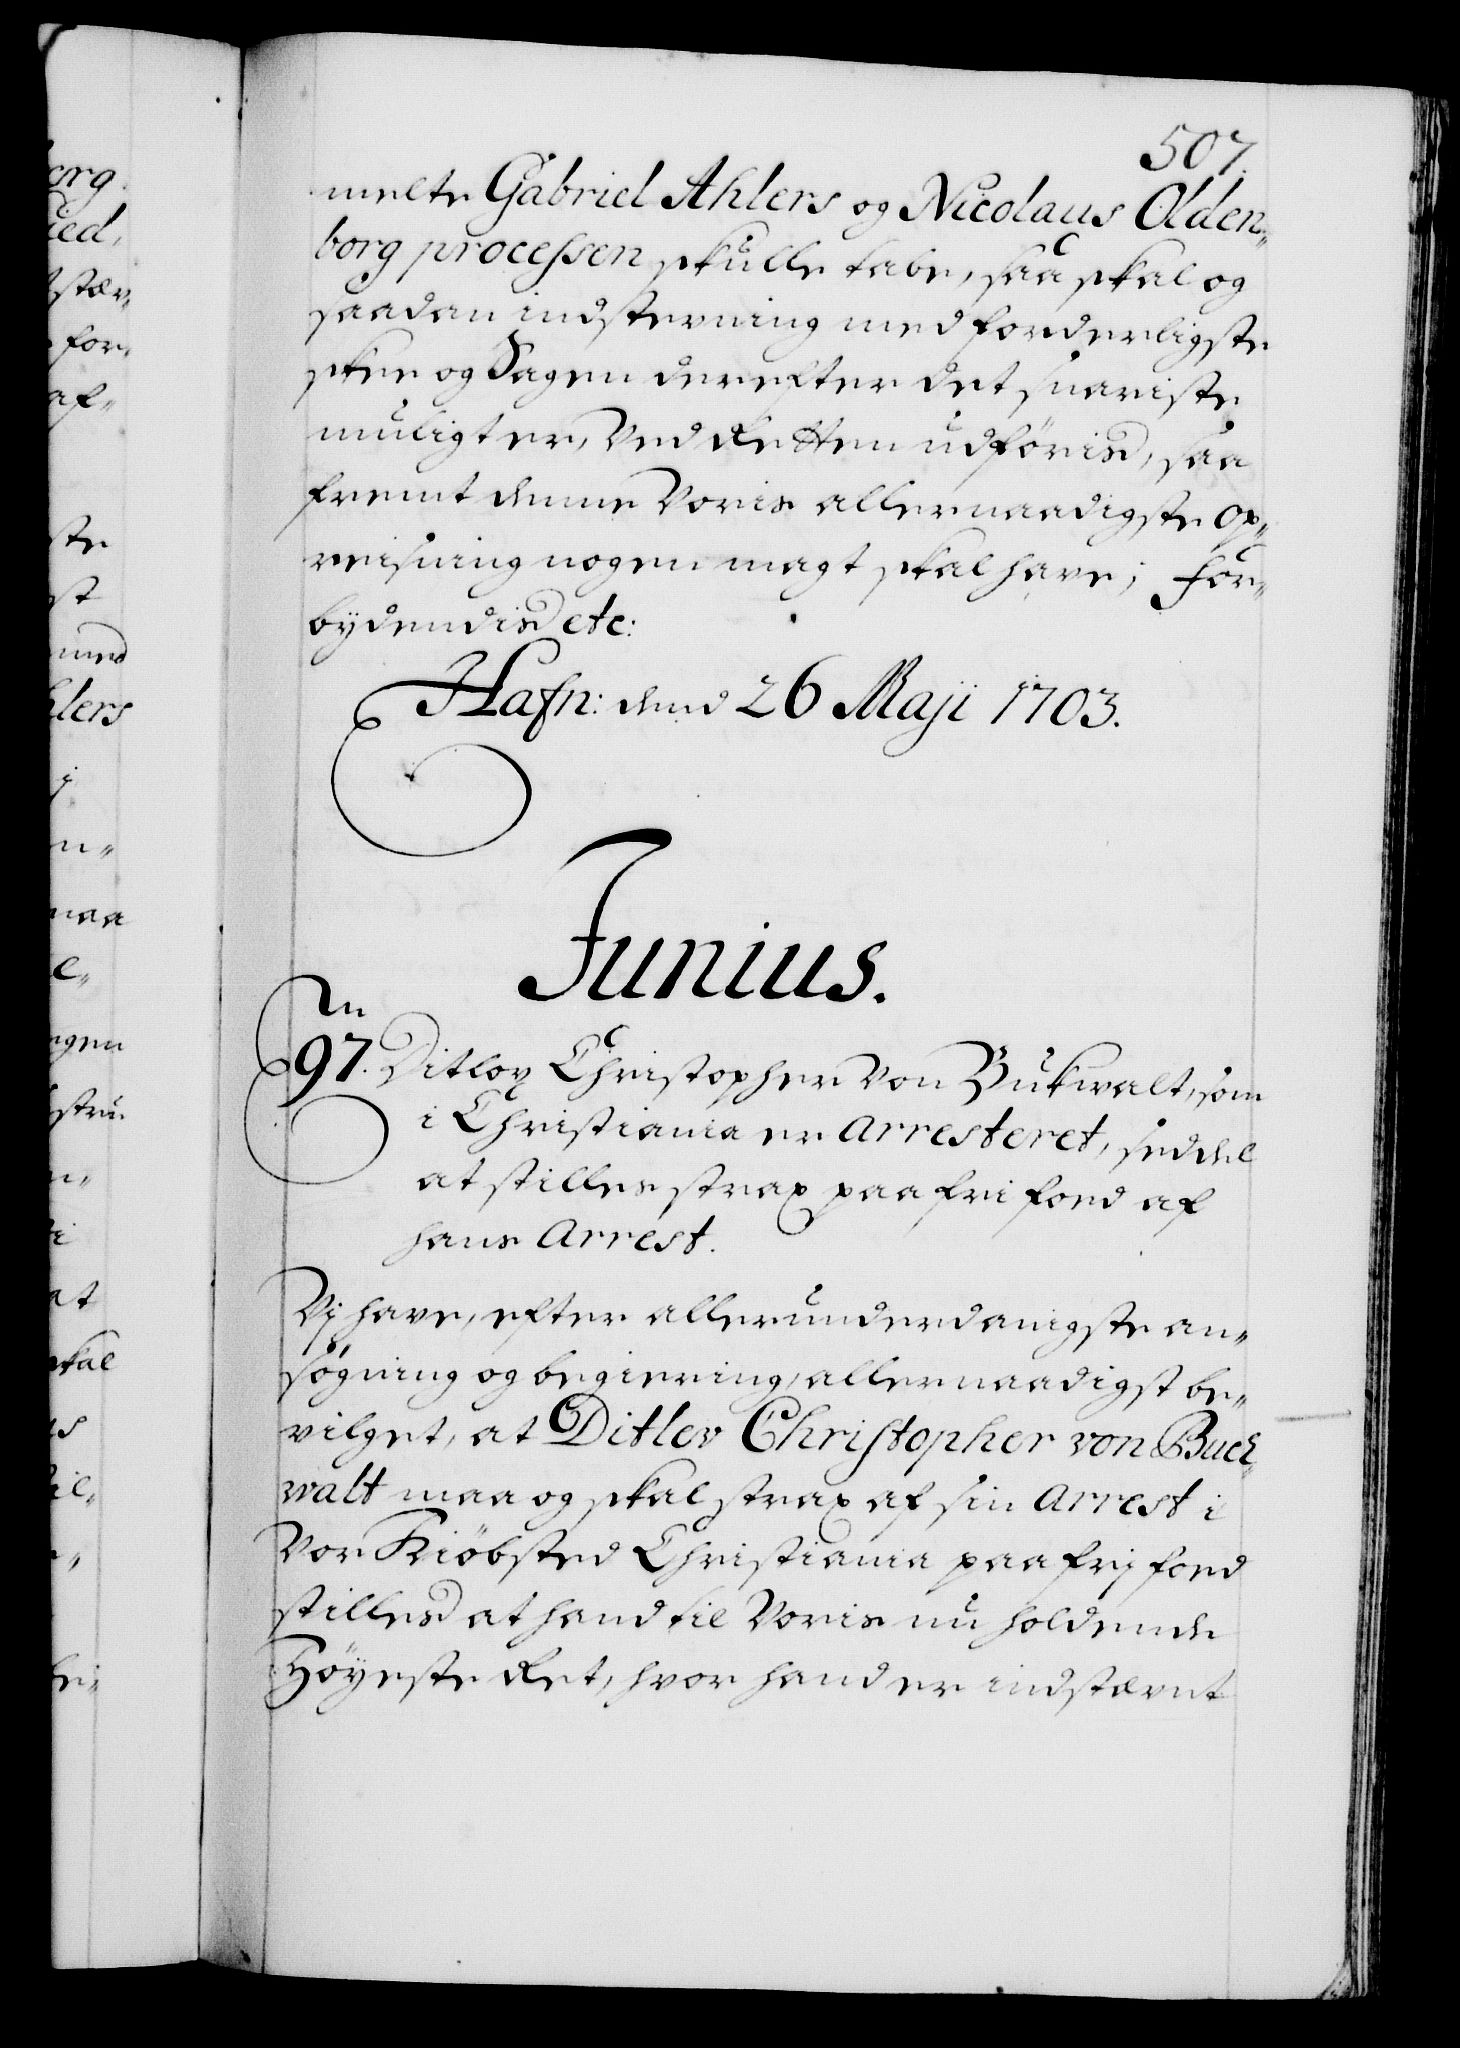 507.
melte Gabriel Ahlers og Nicolaus Olden-
borg processen skulle tabe, saa skal og
saadan indstevning med forderligste
skee og Sagen derefter det snariste
muligt er, ved Retten udföris, saa
fremt denne Voris allernaadigste op-
reisning nogen magt skal have; For-
bydendis etc:
Hafn: dend 26 Maji 1703.
Junius.
97. Ditlov Christopher von Bukwalt, som
i Christiania er Arresteret, seddel
at stilles strax paa fri foed af
hans Arrest.
Vj have, efter allerunderdanigste an-
søgning og begiering, allernaadigst be-
vilget, at Ditlev Christopher von Buch-
walt maa og skal strax af sin Arrest i
Vor Kiöbsted Christiania paa frj foed
stilles at hand til Voris nu holdende
Höyeste Ret, hvor hand er indstævnt